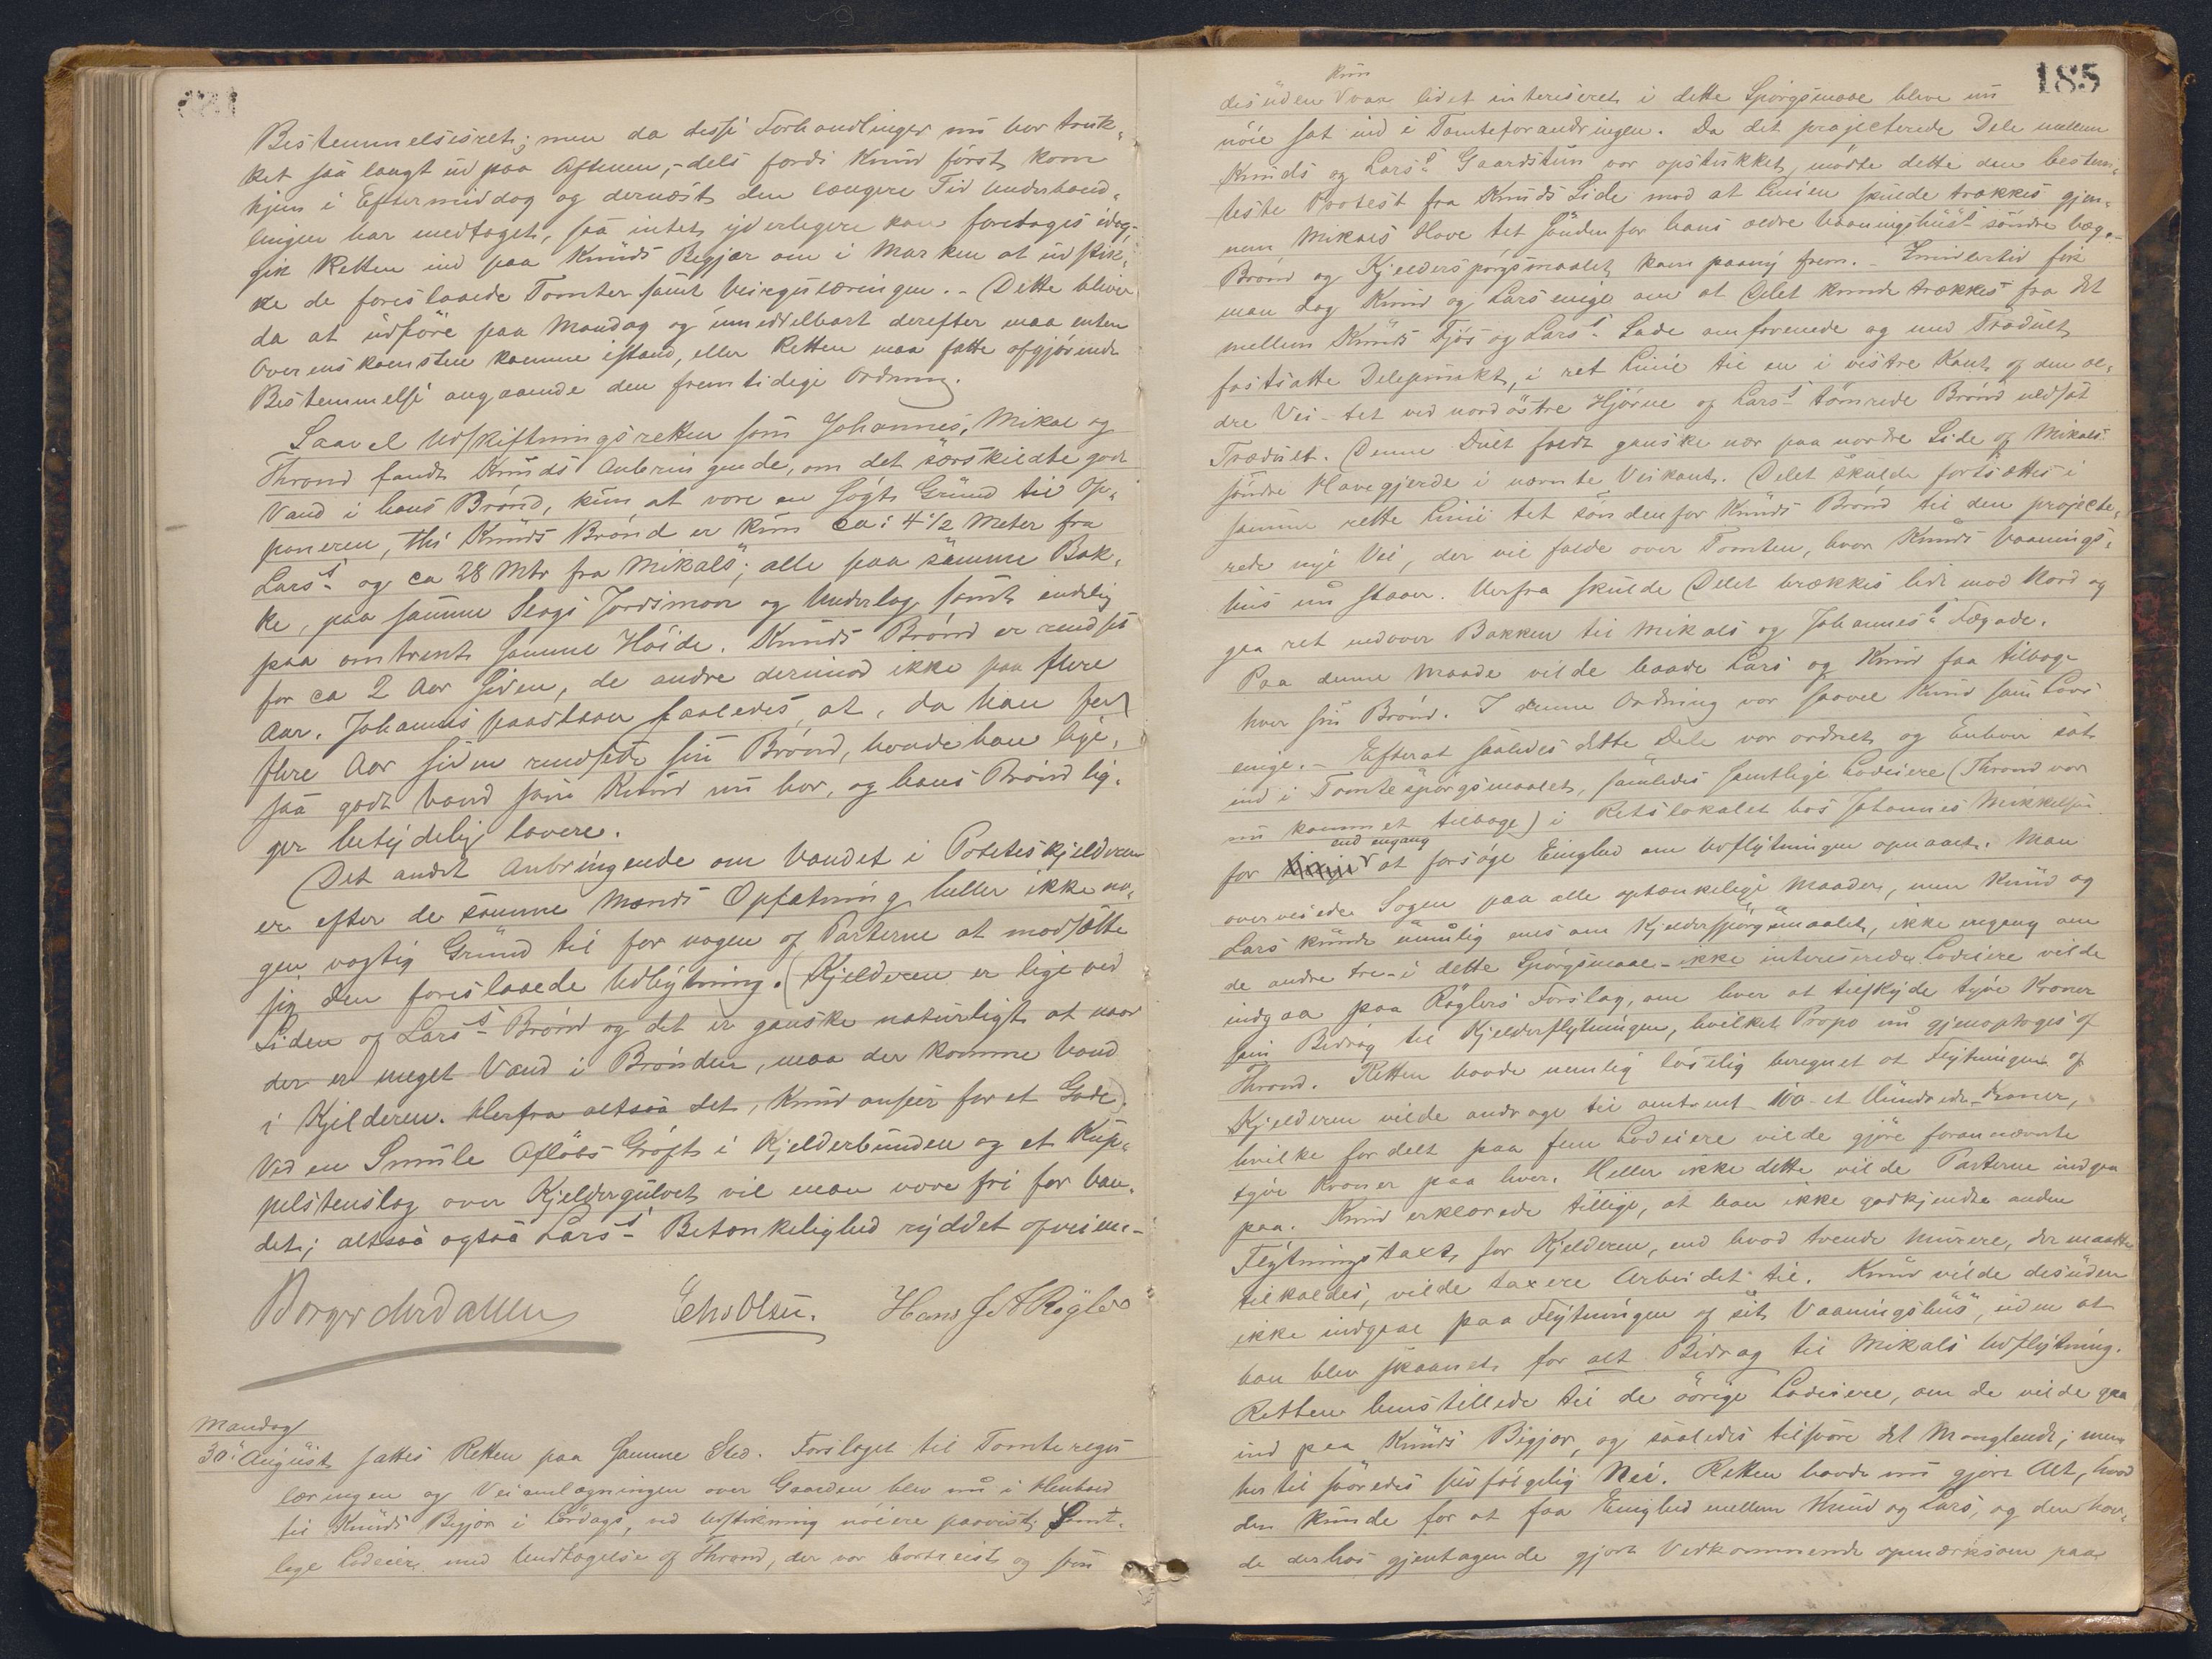 Bestemmelsesret; men da disse Forhandlinger nu har truk-
ket saa langt ud paa Aftenen, - dels fordi Knud först kom
hjem i Eftermiddag og dernæst den længere Tid Underhand-
lingen har medtaget, saa intet yderligere kan foretages idag,
gik Retten ind paa Knuds Begjær om i Marken at udstik-
ke de foreslaaede Tomter samt Veireguleringen. - Dette bliver
da at udföre paa Mandag og umiddelbart derefter maa enten
Overenskomsten komme istand, eller Retten maa fatte afgjörende
Bestemmelse angaaende den fremtidige Ordning.
Saavel Udskiftningsretten som Johannes, Mikal og
Thrond fandt Knuds Anbringende, om det særskildte godt
Vand i hans Brönd, kun at være en sögt Grund til Op-
poneren, thi Knuds Brönd er kun ca: 4 1/2 Meter fra
Lars's og ca 28 Mtr fra Mikals; alle paa samme Bak-
ke, paa samme Slags Jordsmon og Underlag samt endelig
paa omtrent samme Höide. Knuds Brönd er rendset
for ca 2 Aar siden, de andre derimod ikke paa flere
Aar. Johannes paastaar saaledes, at, da han for
flere Aar siden rendsede sin Brönd, havde han lige-
saa godt Vand som Knud nu har, og hans Brönd lig-
ger betydelig lavere.
Det andet Anbringende om Vandet i Poteteskjelderen
er efter de samme Mænds Opfatning heller ikke no-
gen vægtig Grund til for nogen af Parterne at modsætte
sig den foreslaaede Udbytning. (Kjelderen er lige ved
Siden af Lars's Brönd og det er ganske naturligt at naar
der er meget Vand i Brönden, maa der komme Vand
i Kjelderen. Herfra altsaa det, Knud anseer for et Gode).
Ved en Smule Aflöbs Gröft i Kjelderbunden og et Kup-
pelstenslag over Kjeldergulvet vil man være fri for Van-
det; altsaa ogsaa Lars's Betænkelighed ryddet afveien. -
Borger Dahlen Chr Olsen. Hans J A Rögler
Mandag
30. August sattes Retten paa samme Sted. Forslaget til Tomteregu-
læringen og Veianlægningen over Gaarden blev nu i Henhold
til Knuds Begjær i Lördags, ved Udstikning nöiere paavist. Samt-
lige Lodeiere med Undtagelse af Thrond, der var bortreist og som
185
kun
desuden var lidet intereseret i dette Spörgsmaal bleve nu
nöie sat ind i Tomteforandringen. Da det projecterede Dele mellem
Knuds og Lars's Gaardstun var opstukket, mödte dette den bestem-
teste Protest fra Knuds Side mod at Linien skulde trækkes gjen-
nem Mikals Have tet söndenfor hans ældre Vaaningshus's söndre Væg. -
Brönd og Kjelderspörgsmaalet kom paany frem. - Imidlertid fik
man dog Knud og Lars enige om at Delet kunde trækkes fra det
mellem Knuds Fjös og Lars's Lade omforenede og med Trædult
fastsatte Delepunkt, i ret Linie til en i vestre Kant af den æl-
dre Vei - tet ved nordöstre Hjörne af Lars's tömrede Brönd nedsat
Trædult. Denne Dult faldt ganske nær paa nordre Side af Mikals
söndre Havegjerde i nævnte Veikant. Delet skulde fortsættes i
samme rette Linie tet söndenfor Knuds Brönd til den projecte-
rede nye Vei, der vil falde over Tomten, hvor Knuds Vaanings-
hus nu staaer. Herfra skulde Delet brækkes lidt mod Nord og
gaa ret nedover Bakken til Mikals og Johannes's Fægade.
Paa denne Maade vilde baade Lars og Knud faa tilbage
hver sin Brönd. I denne Ordning var saavel Knud som Lars
enige. - Efterat saaledes dette Dele var ordnet og Enhver sat
ind i Tomtespörgsmaalet, samledes samtlige Lodeiere (Thrond var
nu kommet tilbage) i Retslokalet hos Johannes Mikkelsen
end engang
for at forsöge Enighed om Udflytningen opnaaet. Man
overveiede Sagen paa alle optænkelige Maader, men Knud og
Lars kunde umulig enes om Kjelderspörgsmaalet, ikke engang om
de andre tre - i dette Spörgsmaal - ikke intereserede Lodeiere vilde
indgaa paa Röglers Forslag, om hver at tilskyde tyve Kroner
som Bidrag til Kjelderflytningen, hvilket Propo nu gjenoptoges af
Thrond. Retten havde nemlig löselig beregnet at Flytningen af
Kjelderen vilde andrage til omtrent 100 - et Hundrede - Kroner,
hvilke fordelt paa fem Lodeiere vilde gjöre forannævnte
tyve Kroner paa hver. Heller ikke dette vilde Parterne indgaa
paa. Knud erklærede tillige, at han ikke godkjendte anden
Flytningstaxt for Kjelderen, end hvad tvende Murere, der maatte
tilkaldes, vilde taxere Arbeidet til. Knud vilde desuden
ikke indgaa paa Flytningen af sit Vaaningshus, uden at
han blev skaanet for alt Bidrag til Mikals Udflytning.
Retten henstillede til de övrige Lodeiere, om de vilde gaa
ind paa Knuds Begjær, og saaledes tilsvare det Manglende; men
hertil svaredes selvfölgelig Nei. Retten havde nu gjort Alt, hvad
den kunde for at faa Enighed mellem Knud og Lars, og den hav-
de derhos gjentagende gjort Vedkommende opmærksom paa